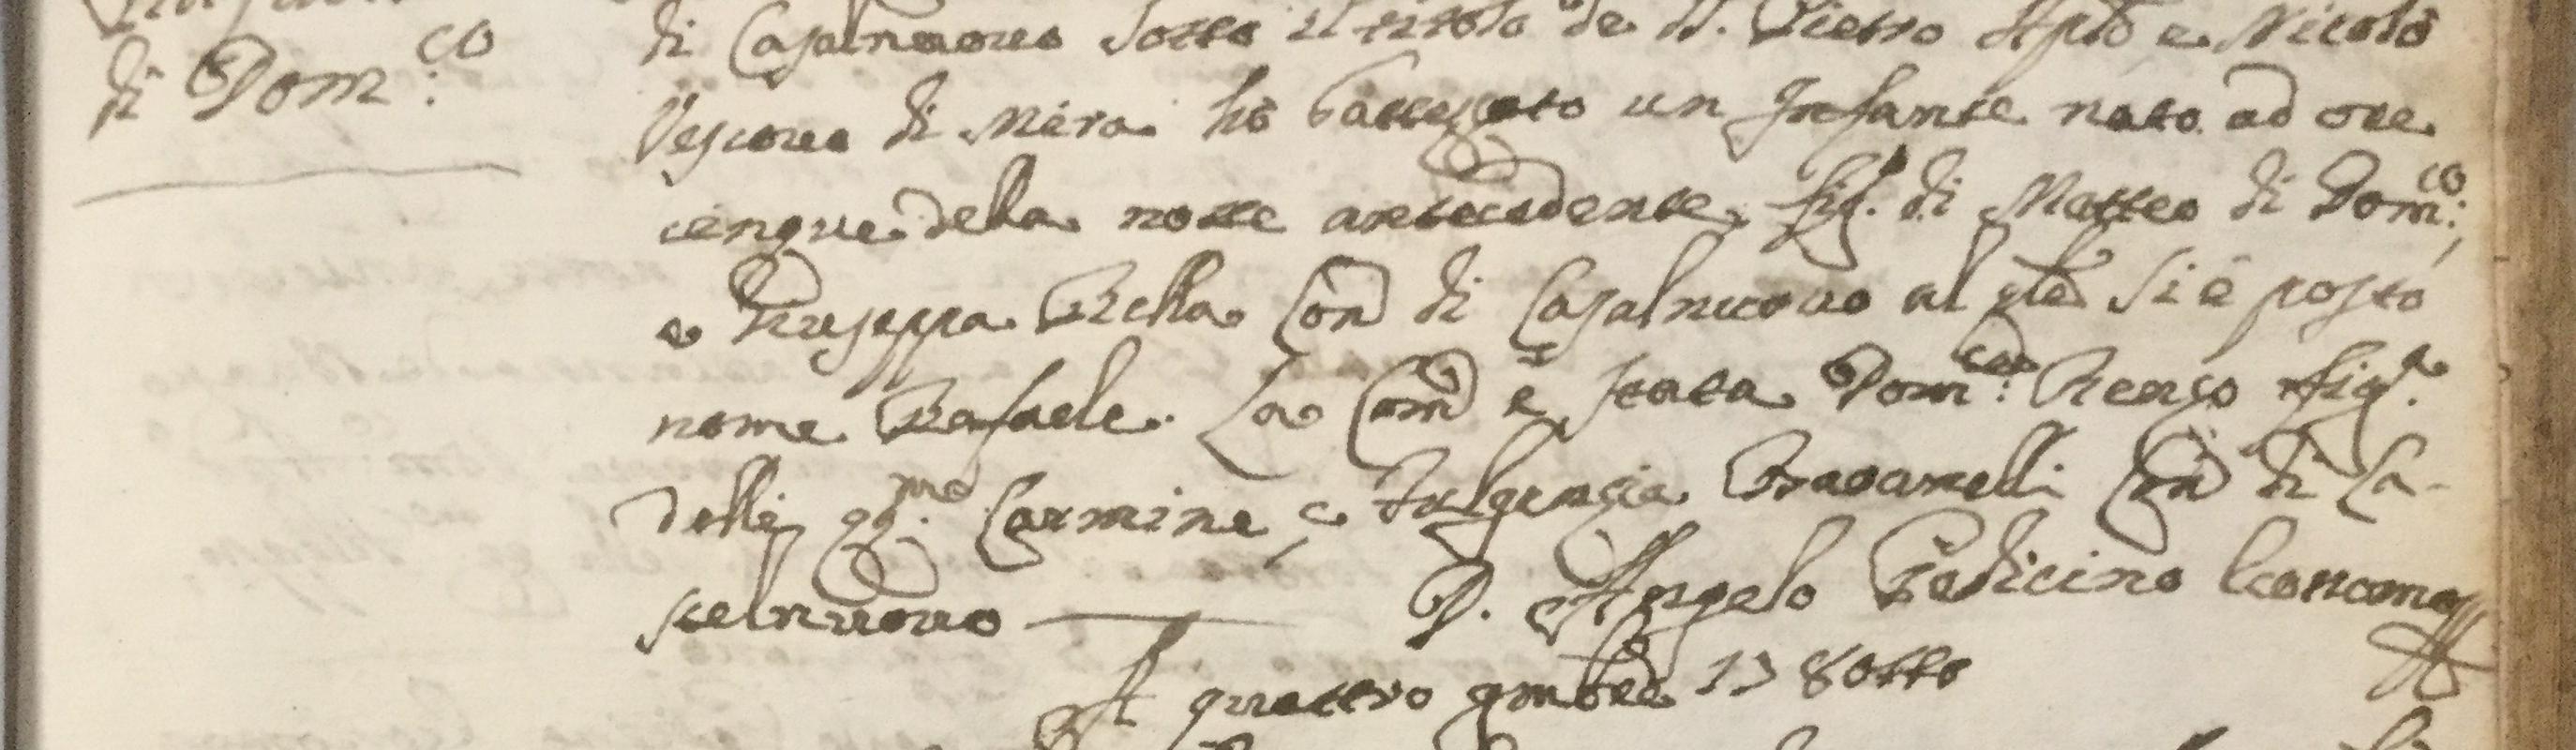 di Dom:co
di Casalnuovo sotto il titolo de SS. Pietro Aplo e Nicolò
Vescovo di Mira hò battezzato un Infante nato ad ore
cinque della notte antecedente, fig. di Matteo di Dom:co,
e Giuseppa Rella Con di Casalnuovo al qle si è posto
nome Rafaele. La Com è stata Dom:ca Renzo fig.a
delli qq.m Carmine, e Fulgenzia Bavanelli Con di Ca-
salnuovo — D. Angelo Pedicino Econcom
A quattro 9mbre 178otto